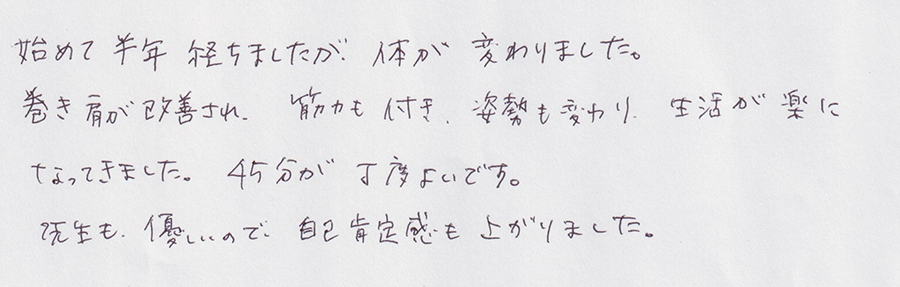 始めて半年経ちましたが、体が変わりました。
巻き肩が改善され、筋力も付き、姿勢も変わり、生活が楽に
なってきました。45分が丁度よいです。
先生も、優しいので、自己肯定感も上がりました。